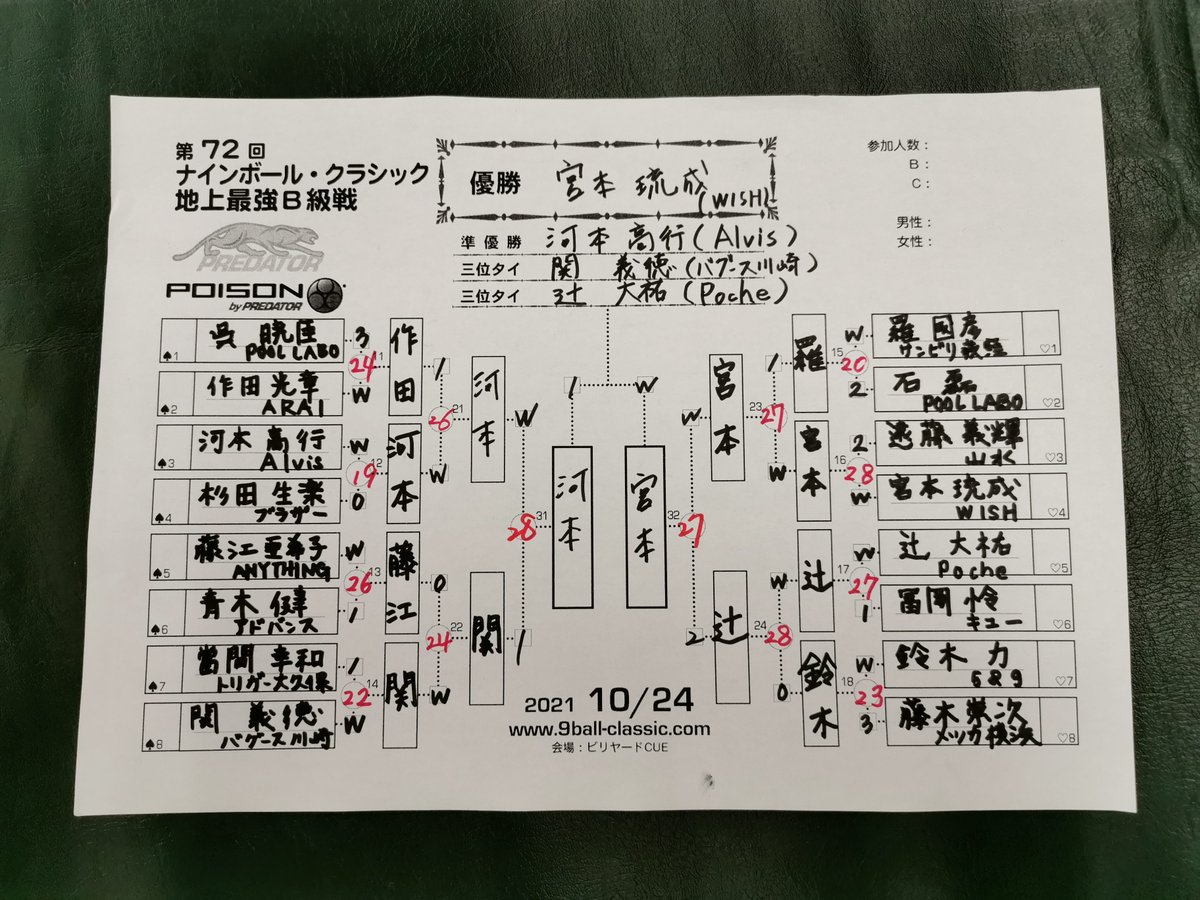 第72回
ナインボール・クラシック
地上最強B級戦
PREDATOR
POISON
by PREDATOR
優勝 宮本 琉成
(WISH)
準優勝 河本 高行(Alvis)
三位タイ 関 義徳(バグース川崎)
三位タイ 辻 大祐(Poche)
参加人数：
B：
C：
男性：
女性：
♠1 呉 暁臣 3
POOL LABO
24 11
♠2 作田 光章 W
ARAI
♠3 河本 高行 W
Alvis
19 12
♠4 杉田 生楽 0
ブラザー
♠5 藤江 亜希子 W
ANYTHING
26 13
♠6 青木 健 1
アドバンス
♠7 當間 幸和 1
トリガー大久保
22 14
♠8 関 義徳 W
バグース川崎
作田 1
26 21
河本 W
藤江 0
24 22
関 W
河本 W
28 31
関 1
河本 1
宮本 W
宮本 W
27 32
辻 2
羅 1
23 27
宮本 W
辻 W
24 28
鈴木 0
W 羅 国彦 ♡1
サンビリ
15 20
2 石 磊 ♡2
POOL LABO
2 遠藤 義輝 ♡3
山水
16 28
W 宮本 琉成 ♡4
WISH
W 辻 大祐 ♡5
Poche
17 27
1 冨岡 怜 ♡6
キュー
W 鈴木 力 ♡7
5&9
18 23
3 藤木 栄次 ♡8
メッカ横浜
2021 10/24
www.9ball-classic.com
会場：ビリヤードCUE